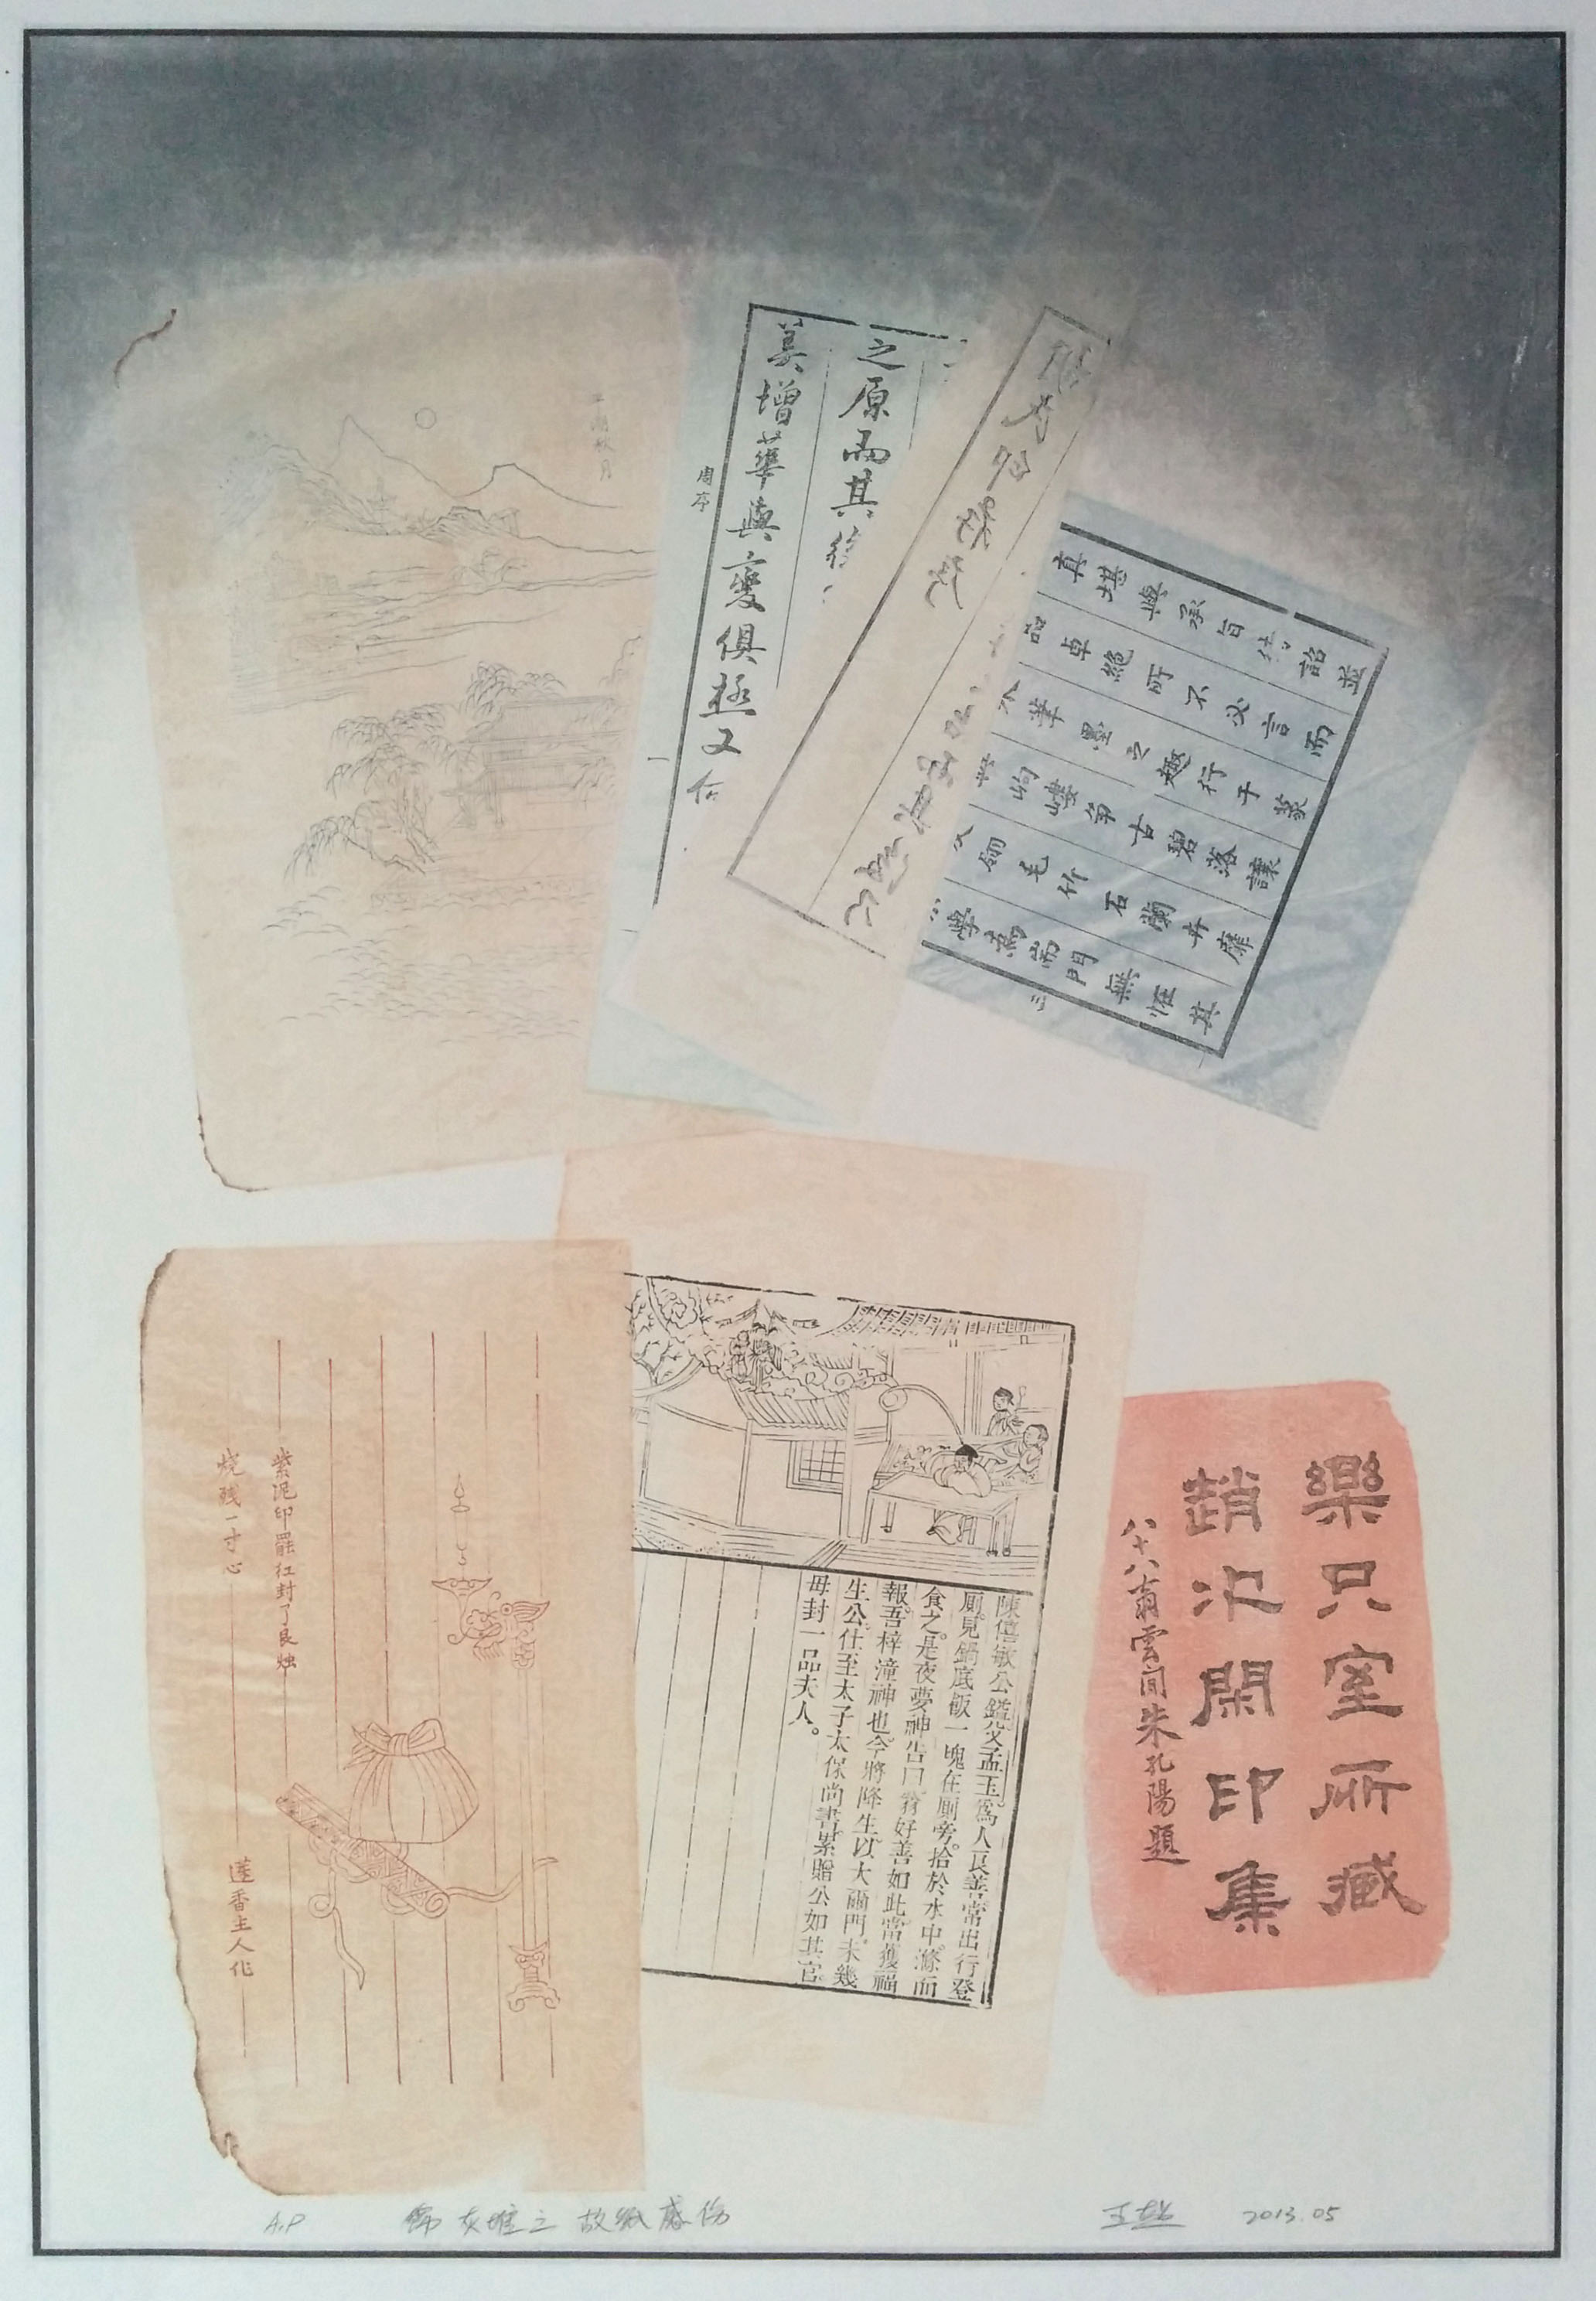 平湖秋月
之原而其
美增華與變俱極又何
周序
真堪與承旨待詔並
品卓絕所不必言而
筆墨之趣行于篆
岣嶁爭古碧落讓
翎毛竹石蘭卉靡
學為耑門無恠其
三
陳僖敏公鎰父孟玉爲人良善常出行登
厠見鍋底飯一塊在厠旁拾於水中滌而
食之是夜夢神告曰翁好善如此當獲福
報吾梓潼神也今將降生以大爾門未幾
生公仕至太子太保尚書累贈公如其官
毋封一品夫人。
紫泥印罷红封了良烛
烧残一寸心
蓮香主人作
樂只室所藏
趙㳄閑印集
八十八翁雲间朱孔陽題
A.P 錦灰堆之 故紙感伤
王超 2013.05